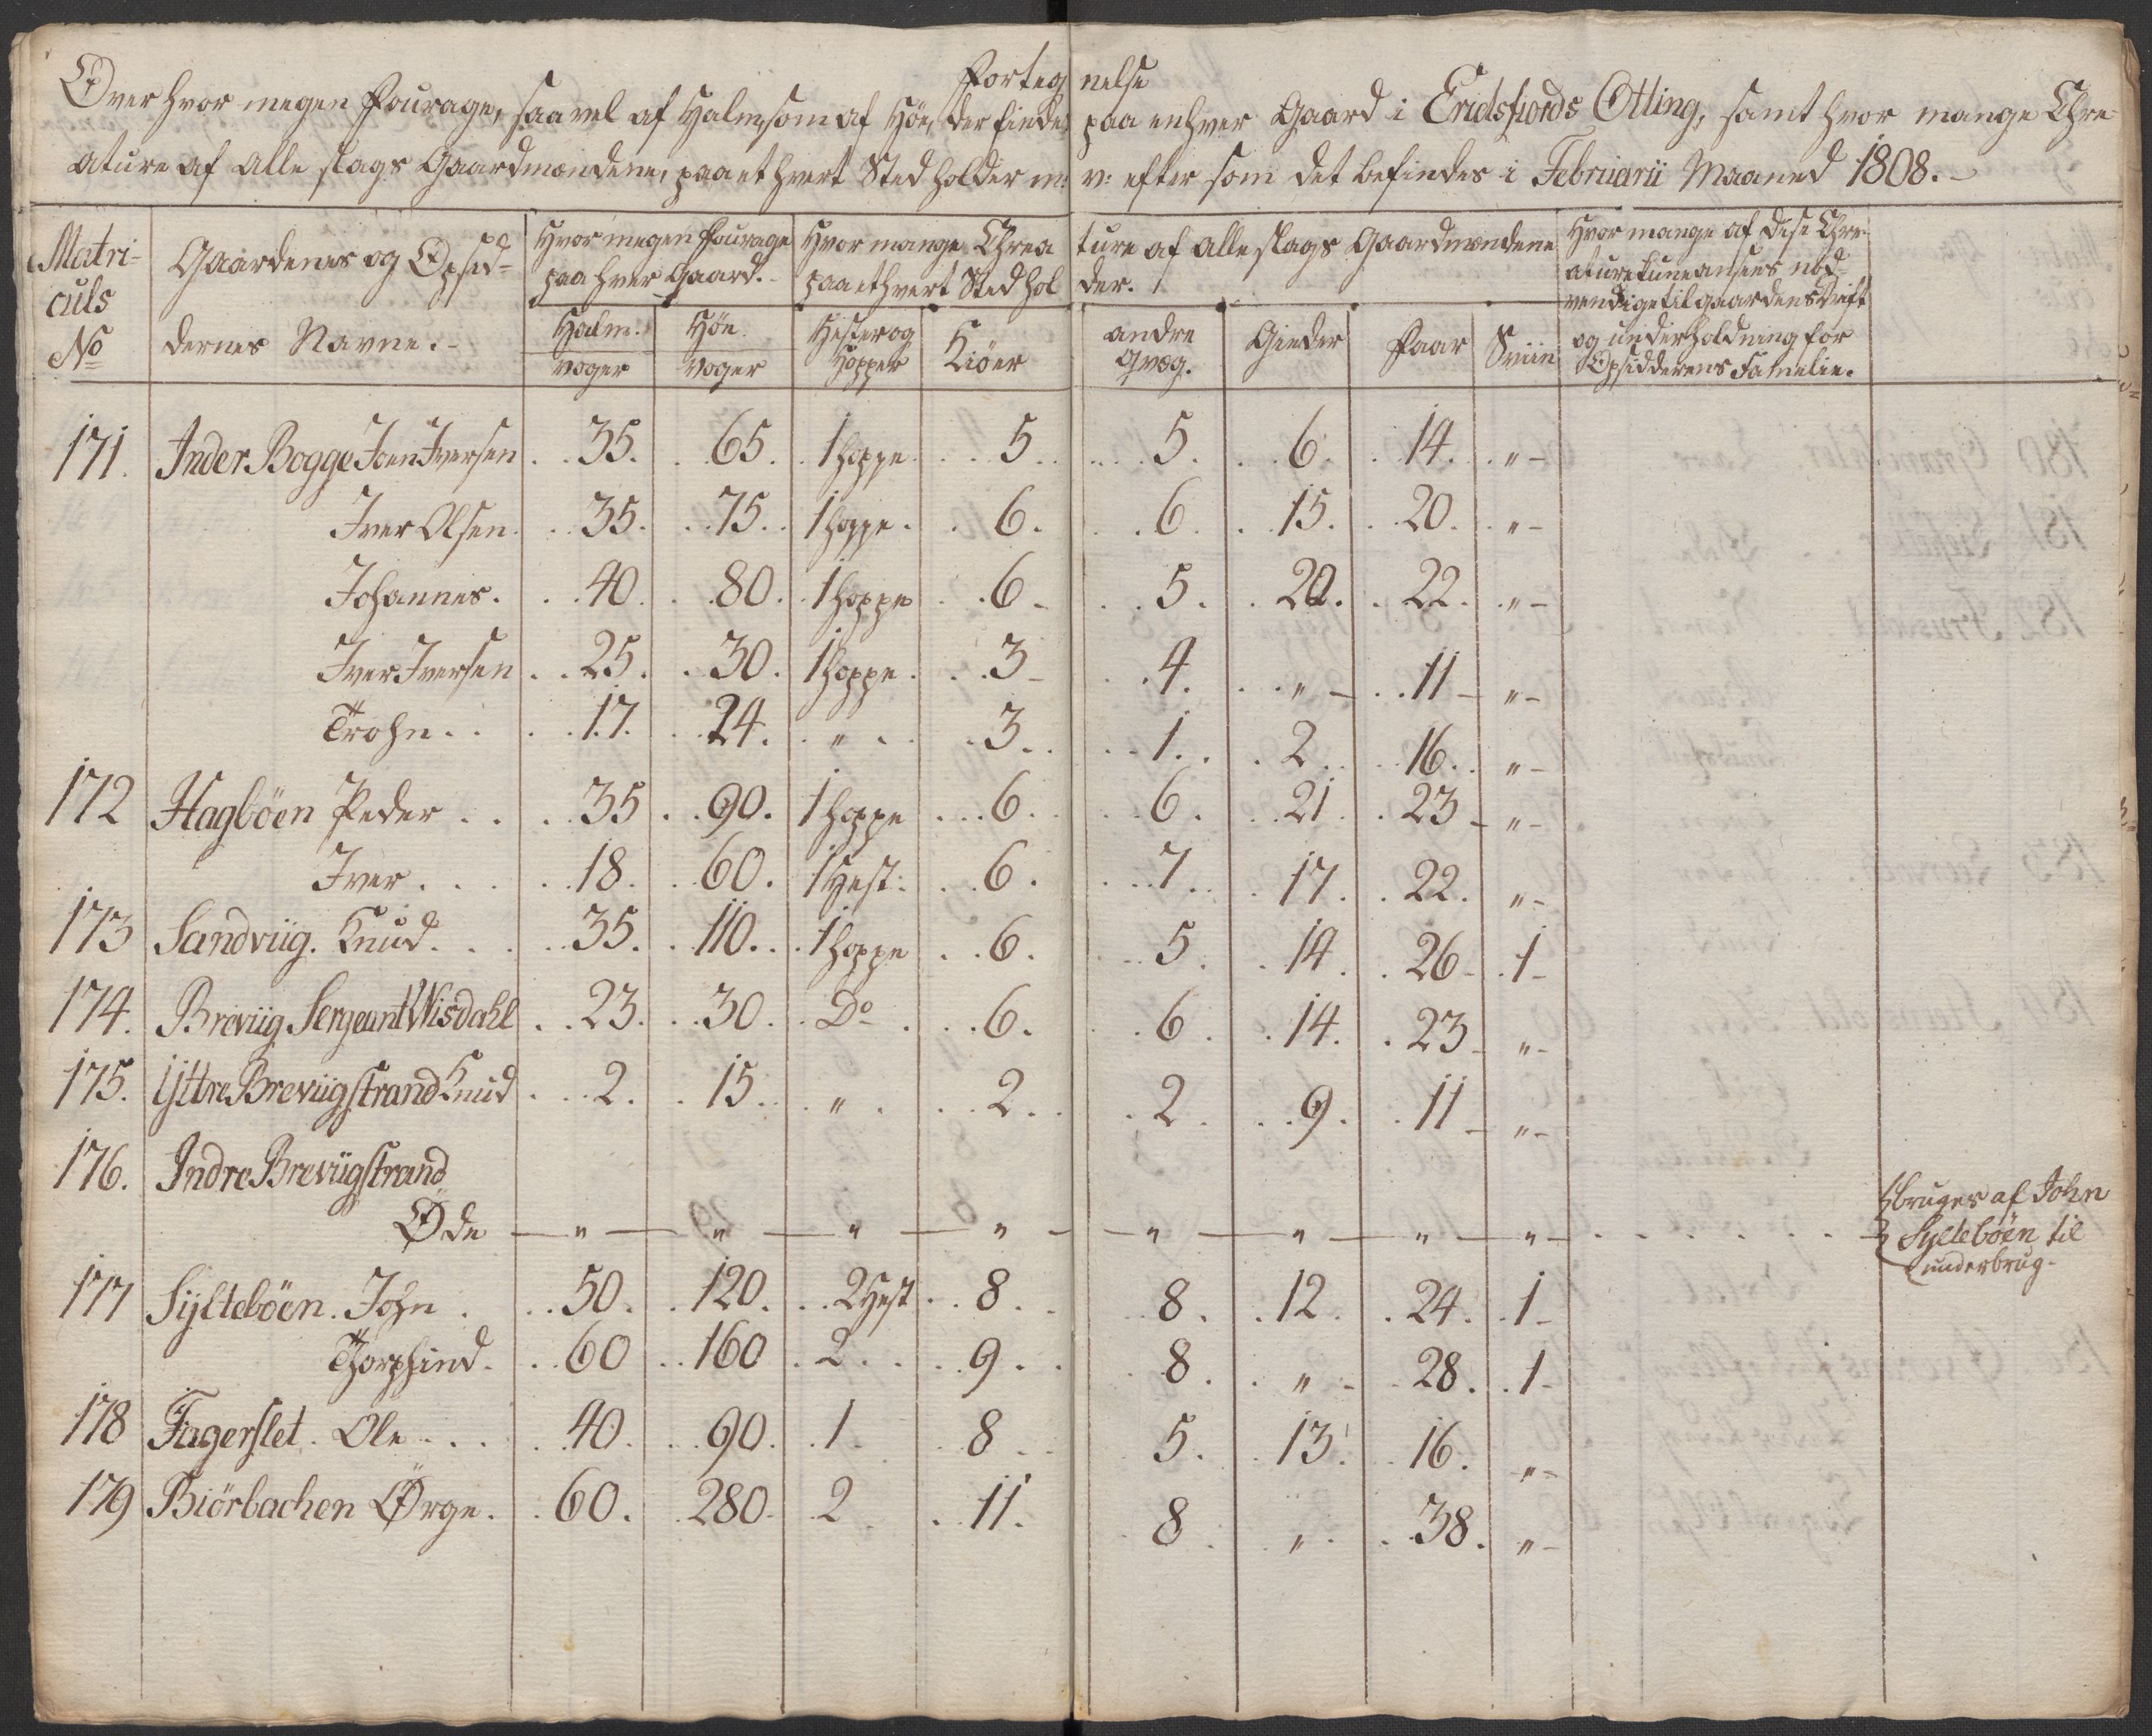 Forteg nelse
Over hvor megen Fourage, saavel af Halm, som af Höe, der findes paa enhver Gaard i Eridsfiords Otting, samt hvor mange Chre-
ature af alle slags Gaardmændene, paa ethvert Sted holder m: v: efter som det befindes i Februarii Maaned 1808.
Matri-culs No | Gaardenes og Opsid-dernes Navne. | Hvor megen Fourage paa hver Gaard. | Hvor mange Chrea ture af alle slags Gaardmændene paa ethvert Sted hol der. | Hvor mange af disse Chre-ature kune ansees nöd-vendige til gaardens drift og underholdning for Opsidderens Familie.
Halm. voger | Höe. voger | Hester og Hopper | Kiöer | andre qvæg. | Gieder | Faar | Sviin
171. Inder Bogge Joen Iversen . . 35. . 65. . 1 hoppe . . 5 . . . 5. . 6. . 14. . " -
Iver Olsen . . 35. . . 75. . 1 hoppe. . 6. . . 6. . 15. . 20. . " -
Johannes. . . 40. . 80. . 1 hoppe . . 6 - . . 5. . 20. . 22. . " -
Iver Iversen . . 25. . 30. 1 hoppe. . . 3 - . . 4. . . " - . . 11 - " -
Trohn . . . . 17. . 24. . " . . . 3. . . . 1. . . 2. . 16. . " -
172 Hagböen Peder . . . . 35 . . 90. 1 hoppe . . . 6. . . 6. . . 21 . . 23 - " -
Iver . . . . . 18. . 60. 1 Hest. . . 6. . . . 7. . . 17. . 22. " -
173 Sandviig. Knud . . . . . 35. . 110. . . 1 hoppe . . 6. . . 5. . 14. . 26 - . 1 -
174. Breviig Sergeant Wisdahl . . 23. . . 30. . Do . . . 6. . . 6. . 14. . 23 - " -
175. Ÿttre Breviigstrand Knud . . . 2. . 15. . . " . . . 2. . . 2. . . 9. . 11 - " -
176. Indre Breviigstrand
Öde - " - " - " - " - " - " - " - " - . . . . . . bruges af John
Syltebóen til
underbrug.
177 Sÿltebóen. John . . . 50. . 120. . . 2 Hest . . 8. . . . 8. . 12. . 24. . 1 -
Thorphind. . . 60 . . 160 . 2. . . . 9. . . 8. . " - . 28. . 1 -
178 Fagerslet. Ole . . . . 40. . . 90. . 1. . 8. . . 5. . 13. . 16. " -
179 Biörbachen Örge. . 60. . 280. 2. . . 11. . 8. . " . . 38. " -